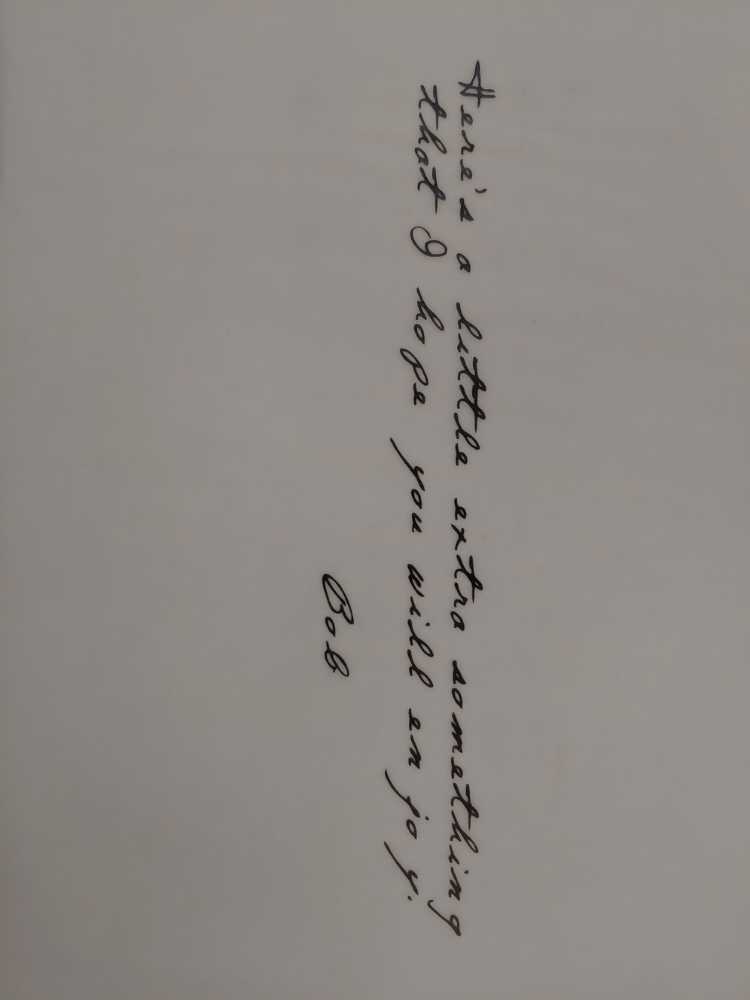 Here's a little extra something
that I hope you will enjoy.
Bob